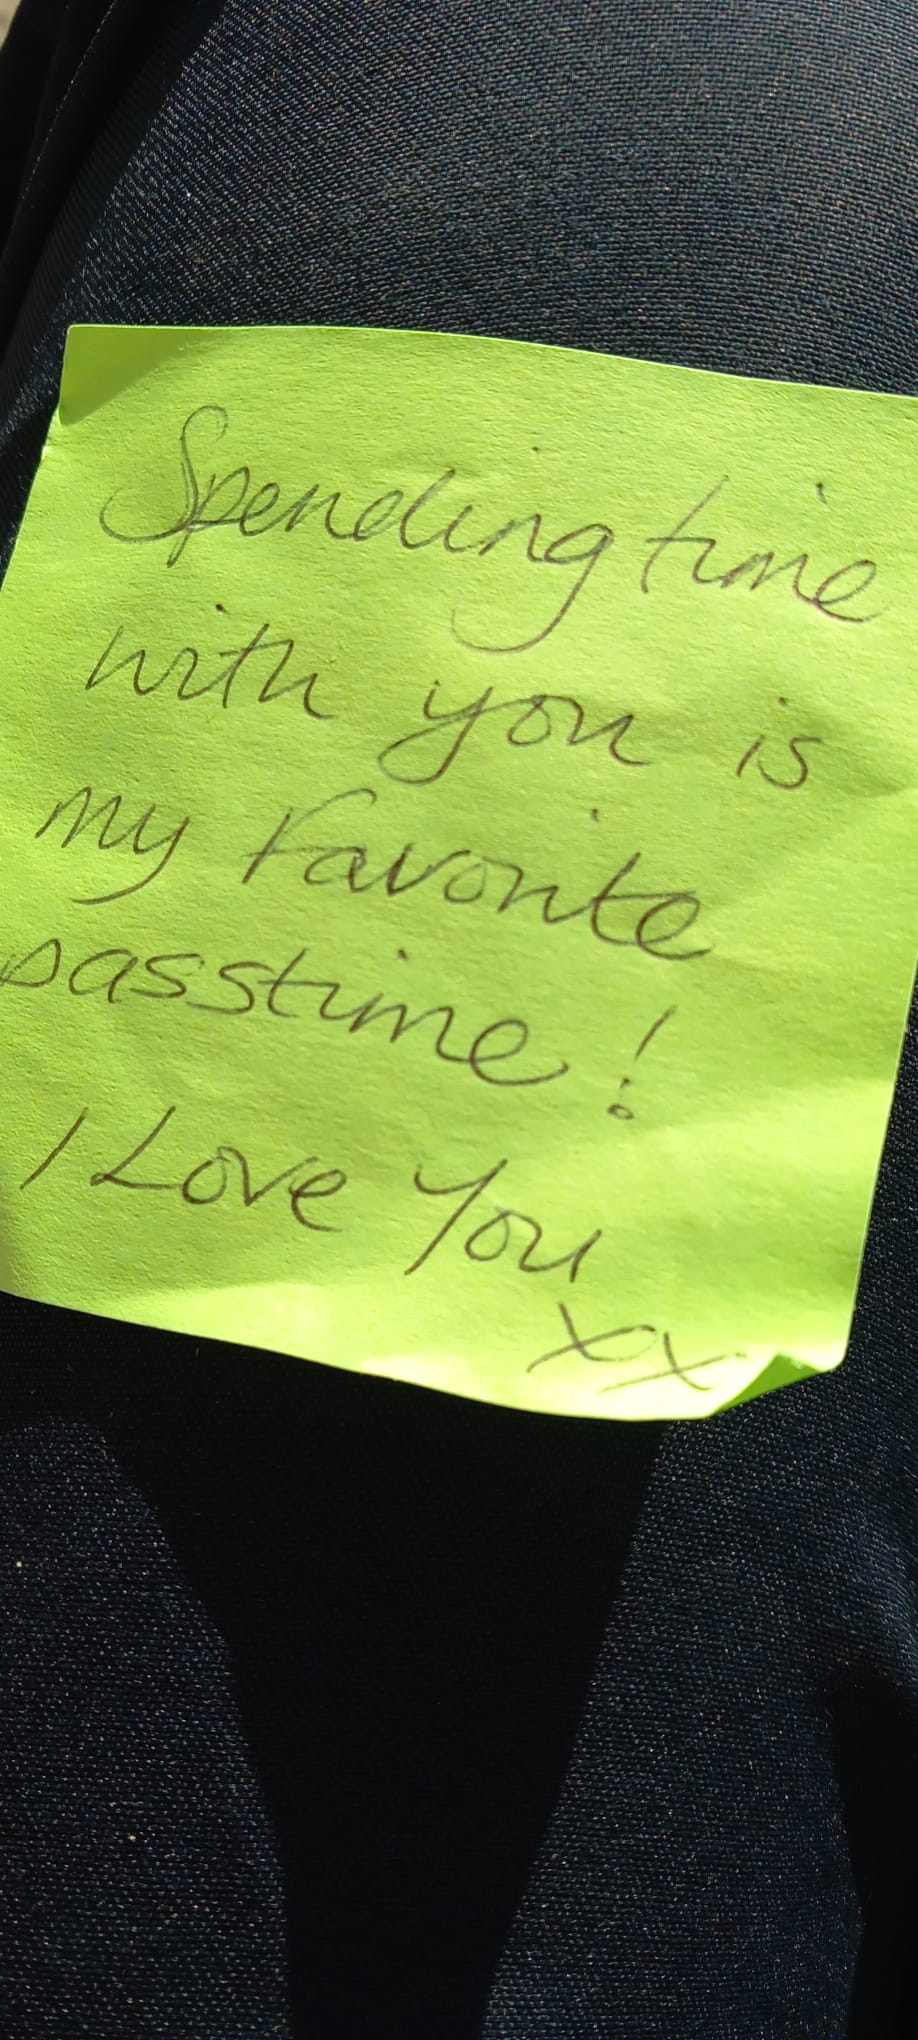 Spending time
with you is
my favorite
passtime!
I Love You
xx